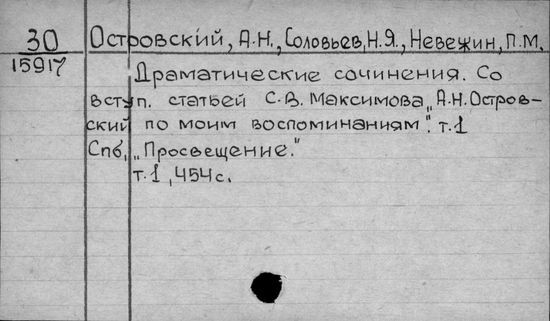 30 Островский, А.Н., Соловьев, Н.Я., Невежин, П.М.
15917 Драматические сочинения. Со
вступ. статьей С.В. Максимова „А.Н. Остров-
ский по моим воспоминаниям". т.1
Спб, „Просвещение."
т.1, 454с.